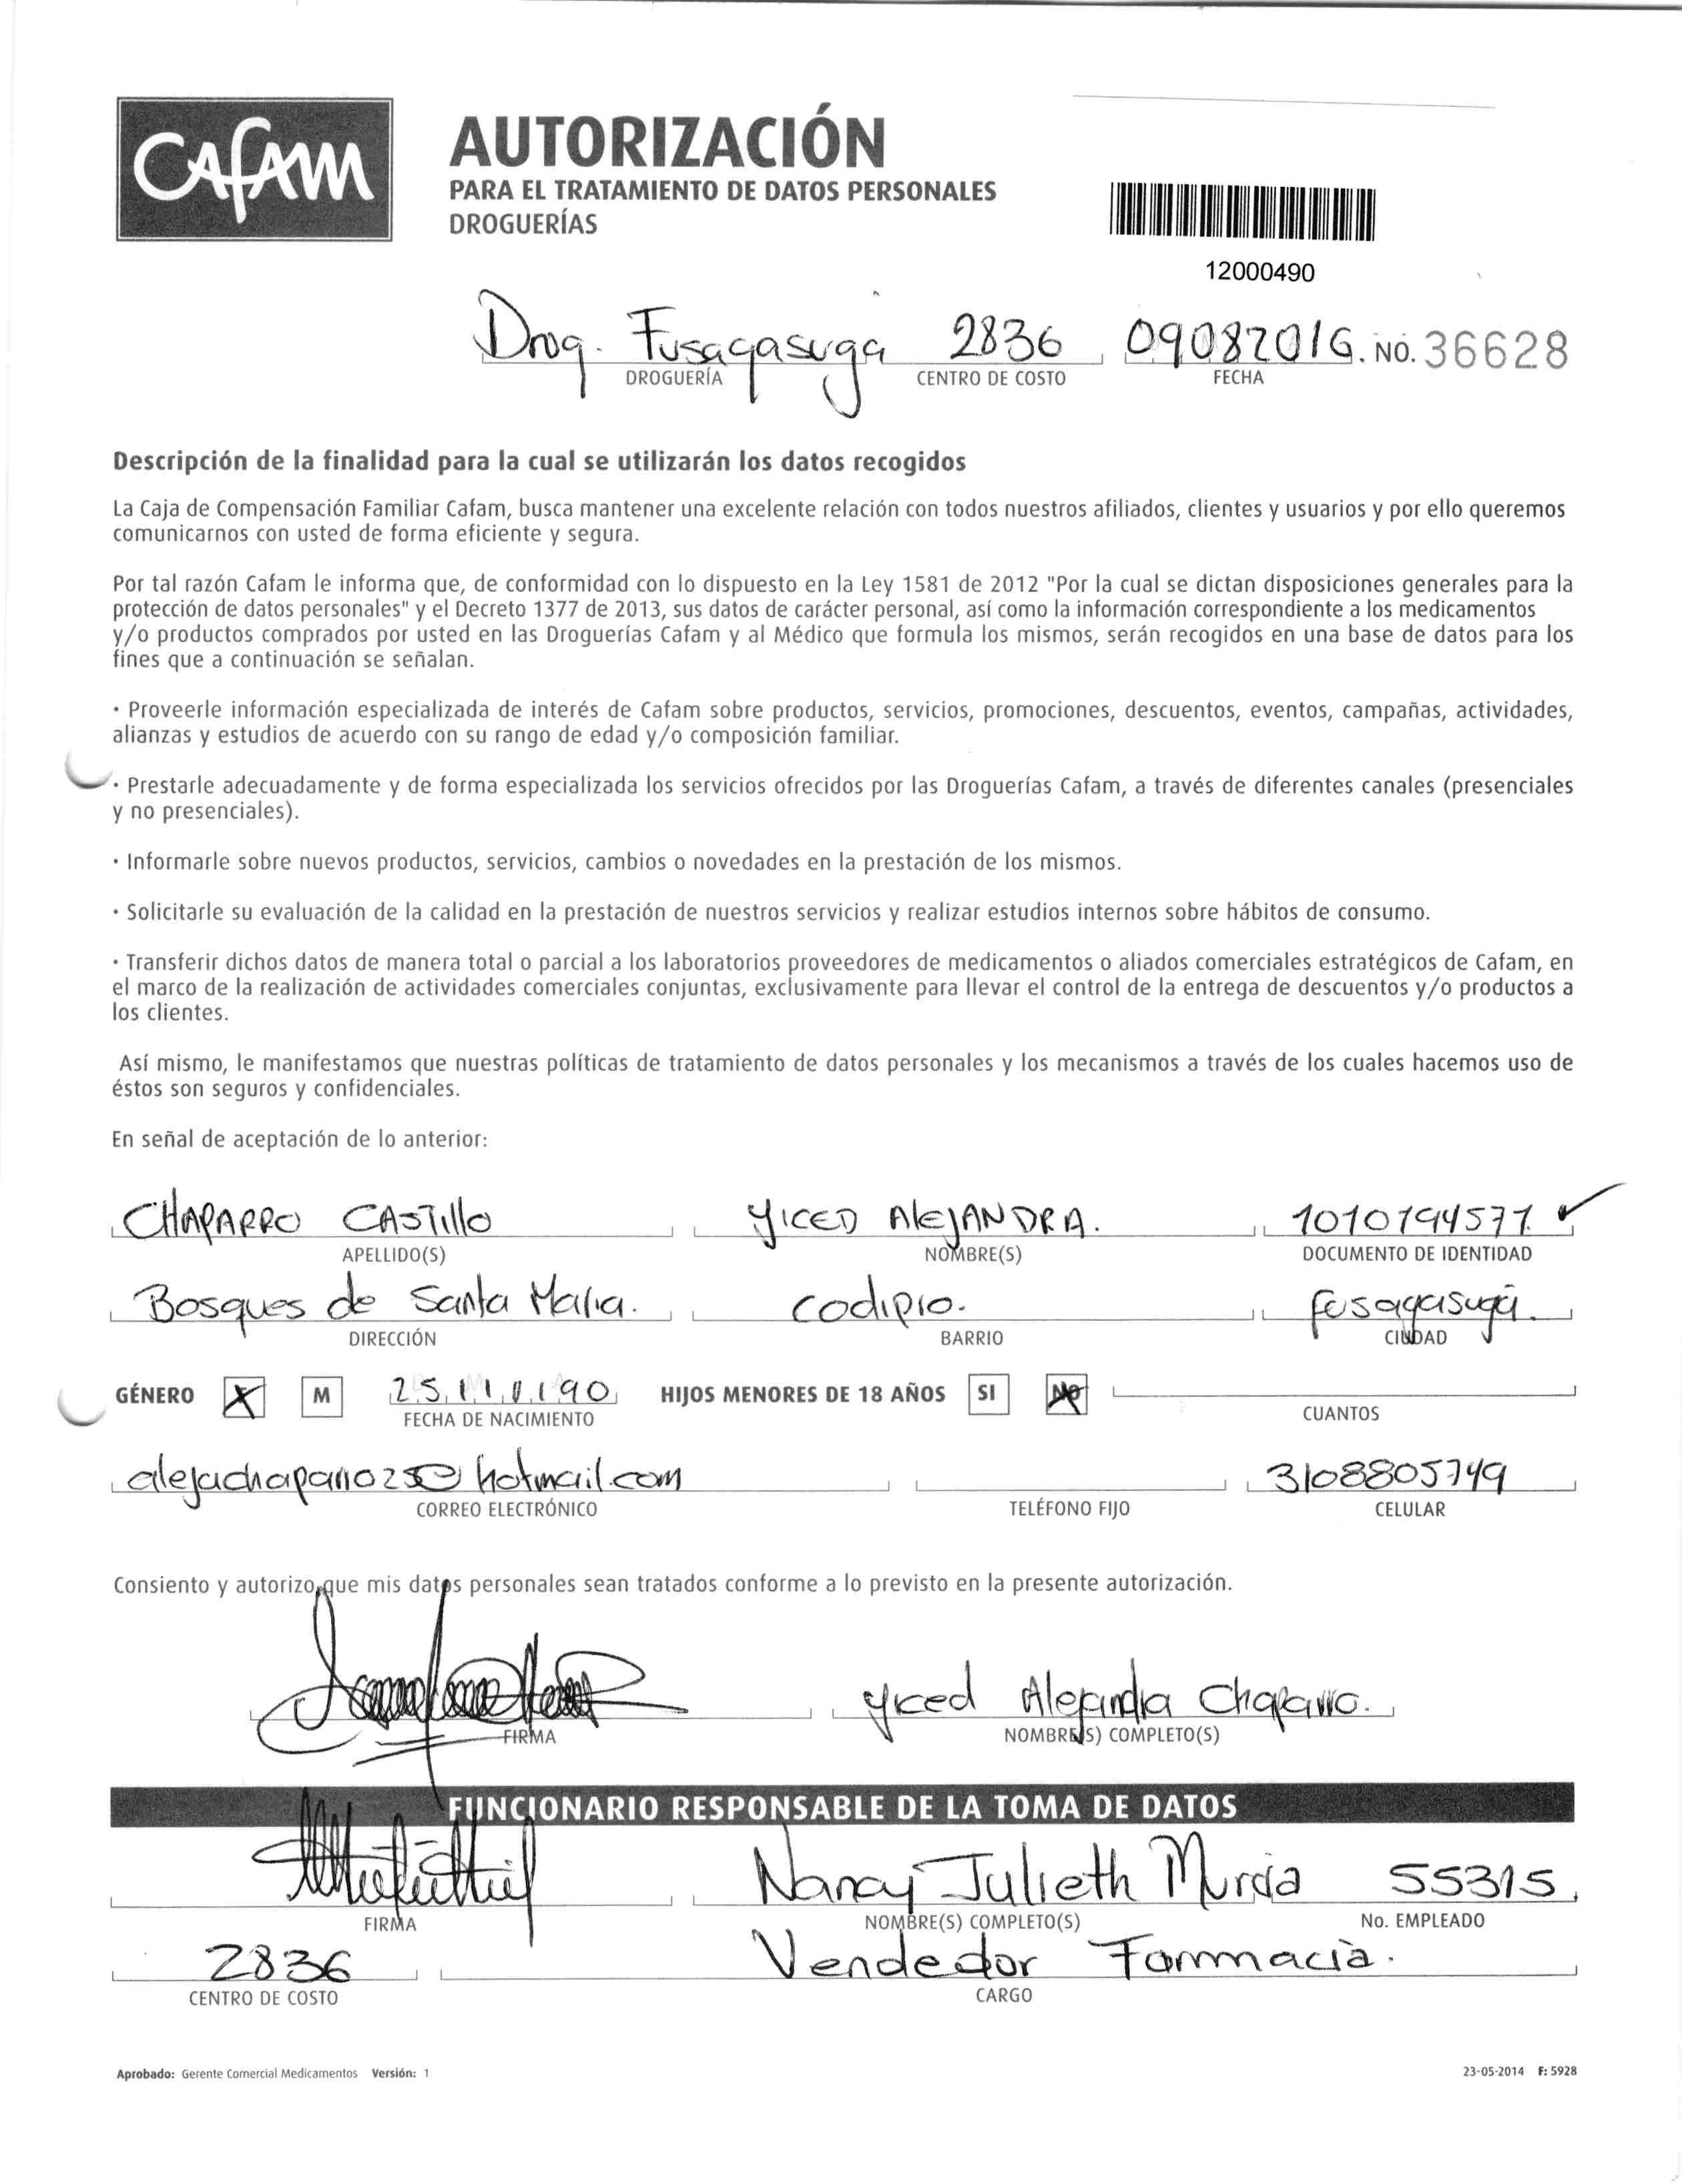 Cafam
AUTORIZACIÓN
PARA EL TRATAMIENTO DE DATOS PERSONALES
DROGUERÍAS
12000490
Drog. Fusagasuga 2836 09082016. NO. 36628
DROGUERÍA CENTRO DE COSTO FECHA
Descripción de la finalidad para la cual se utilizarán los datos recogidos
La Caja de Compensación Familiar Cafam, busca mantener una excelente relación con todos nuestros afiliados, clientes y usuarios y por ello queremos
comunicarnos con usted de forma eficiente y segura.
Por tal razón Cafam le informa que, de conformidad con lo dispuesto en la Ley 1581 de 2012 "Por la cual se dictan disposiciones generales para la
protección de datos personales" y el Decreto 1377 de 2013, sus datos de carácter personal, así como la información correspondiente a los medicamentos
y/o productos comprados por usted en las Droguerías Cafam y al Médico que formula los mismos, serán recogidos en una base de datos para los
fines que a continuación se señalan.
· Proveerle información especializada de interés de Cafam sobre productos, servicios, promociones, descuentos, eventos, campañas, actividades,
alianzas y estudios de acuerdo con su rango de edad y/o composición familiar.
· Prestarle adecuadamente y de forma especializada los servicios ofrecidos por las Droguerías Cafam, a través de diferentes canales (presenciales
y no presenciales).
· Informarle sobre nuevos productos, servicios, cambios o novedades en la prestación de los mismos.
· Solicitarle su evaluación de la calidad en la prestación de nuestros servicios y realizar estudios internos sobre hábitos de consumo.
· Transferir dichos datos de manera total o parcial a los laboratorios proveedores de medicamentos o aliados comerciales estratégicos de Cafam, en
el marco de la realización de actividades comerciales conjuntas, exclusivamente para llevar el control de la entrega de descuentos y/o productos a
los clientes.
Así mismo, le manifestamos que nuestras políticas de tratamiento de datos personales y los mecanismos a través de los cuales hacemos uso de
éstos son seguros y confidenciales.
En señal de aceptación de lo anterior:
CHAPARRO CASTIllo YICED AlEJANDRA. 1010194577
APELLIDO(S) NOMBRE(S) DOCUMENTO DE IDENTIDAD
Bosques de Santa Maria. codipio. fusagasuga.
DIRECCIÓN BARRIO CIUDAD
GÉNERO X M 25 11 90 HIJOS MENORES DE 18 AÑOS SI NO
FECHA DE NACIMIENTO CUANTOS
alejachaparro25@hotmail.com 3108805749
CORREO ELECTRÓNICO TELÉFONO FIJO CELULAR
Consiento y autorizo que mis datos personales sean tratados conforme a lo previsto en la presente autorización.
Yiced Alejandra Chaparro.
FIRMA NOMBRE(S) COMPLETO(S)
FUNCIONARIO RESPONSABLE DE LA TOMA DE DATOS
Nancy Julieth Murcia 55315
FIRMA NOMBRE(S) COMPLETO(S) No. EMPLEADO
2836 Vendedor Farmacia.
CENTRO DE COSTO CARGO
Aprobado: Gerente Comercial Medicamentos Versión: 1 23-05-2014 F: 5928